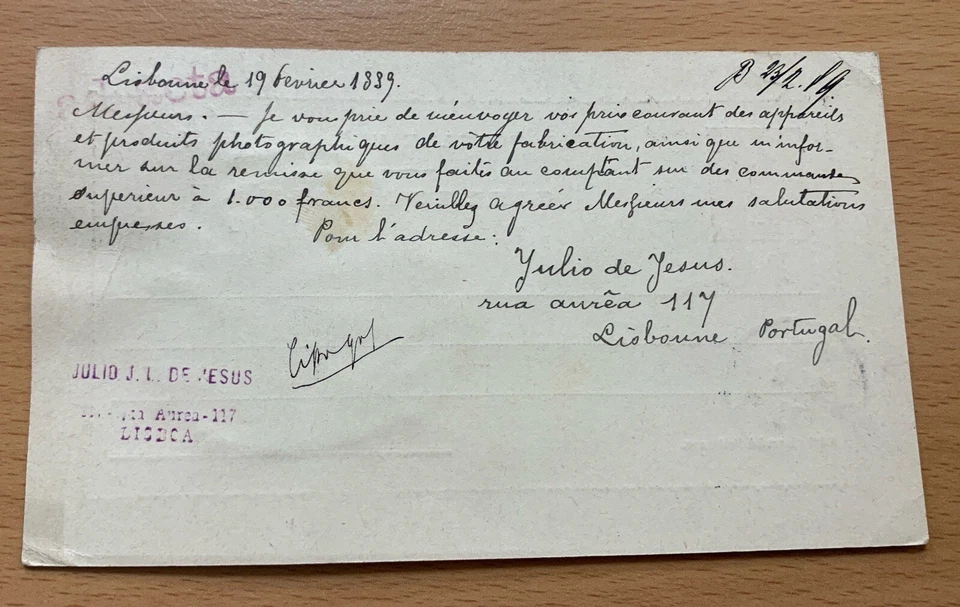 Lisbonne le 19 Fevrier 1889.
23/2. 89
Messieurs. — Je vous prie de m'envoyer vos prix courant des appareils
et produits photographiques de votre fabrication, ainsi que m'infor-
mer sur la remisse que vous faites au comptant sur des commande
superieur à 1.000 francs. Veuillez agréer Messieurs mes salutations
empresses. Pour l'adresse:
Julio de Jesus.
rua aurêa 117
Lisbonne Portugal.
JULIO J. L. DE JESUS
Aurea-117
LISBOA